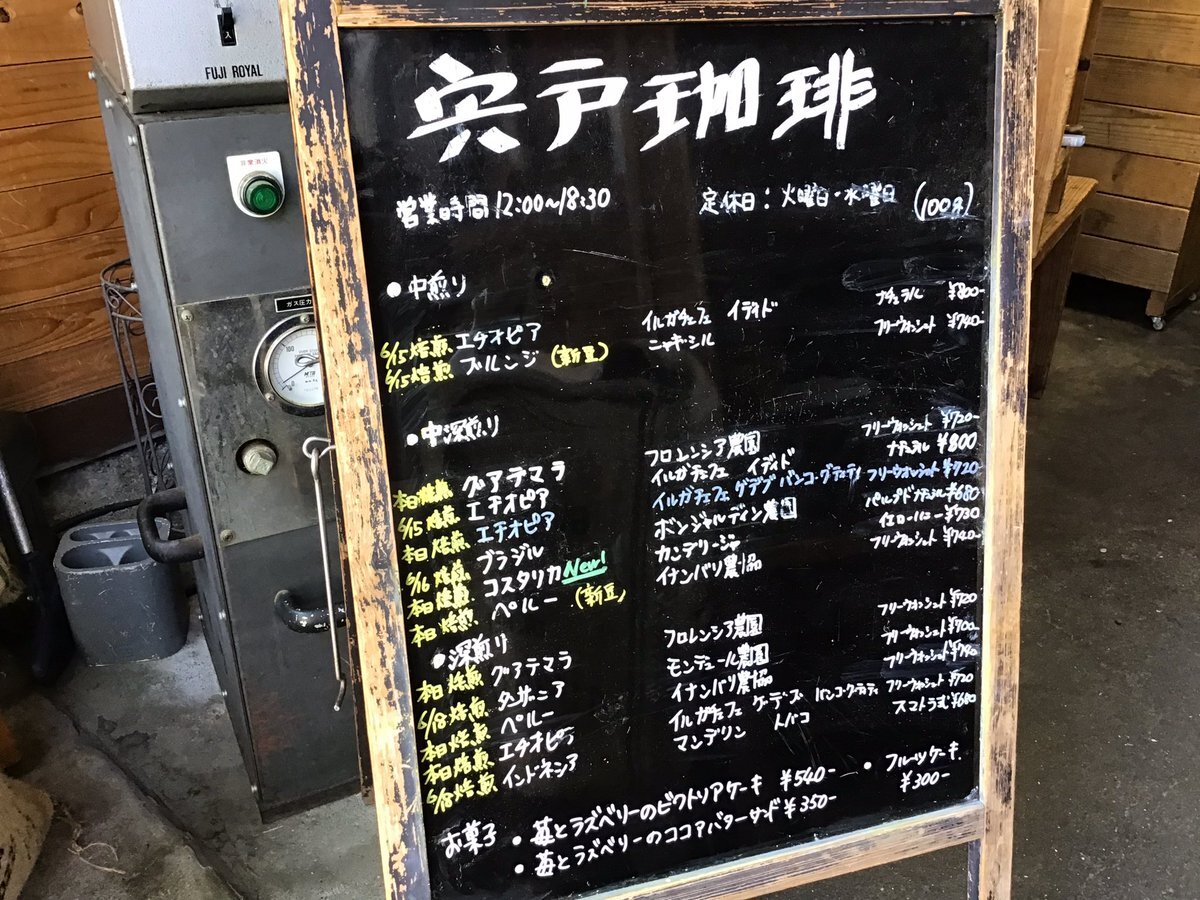 入
FUJI ROYAL
非常消火
ガス圧力
宍戸珈琲
営業時間 12:00〜18:30 定休日：火曜日・水曜日 (100g)
●中煎り
6/15焙煎 エチオピア イルガチェフェ イディド ナチュラル ¥800-
6/15焙煎 ブルンジ (新豆) ニャギシル フリーウォッシュト ¥740-
●中深煎り
本日焙煎 グアテマラ フロレンシア農園 フリーウォッシュト ¥720-
6/15焙煎 エチオピア イルガチェフェ イディド ナチュラル ¥800
本日焙煎 エチオピア イルガチェフェ ゲデブ バンコ・グティティ フリーウォッシュト ¥720-
6/16焙煎 ブラジル ボンジャルディン農園 パルプドナチュラル ¥680
本日焙煎 コスタリカ New! カンデリージャ イエローハニー ¥730
本日焙煎 ペルー (新豆) イナンバリ農協 フリーウォッシュト ¥740-
●深煎り
本日焙煎 グアテマラ フロレンシア農園 フリーウォッシュト ¥720
6/18焙煎 タンザニア モンデュール農園 フリーウォッシュト ¥700-
本日焙煎 ペルー イナンバリ農協 フリーウォッシュト ¥740-
本日焙煎 エチオピア イルガチェフェ ゲデブ バンコ・グティティ フリーウォッシュト ¥720
6/18焙煎 インドネシア マンデリン トバコ スマトラ式 ¥680
お菓子 ・苺とラズベリーのビクトリアケーキ ¥540- ・フルーツケーキ ¥300-
・苺とラズベリーのココアバターサンド ¥350-